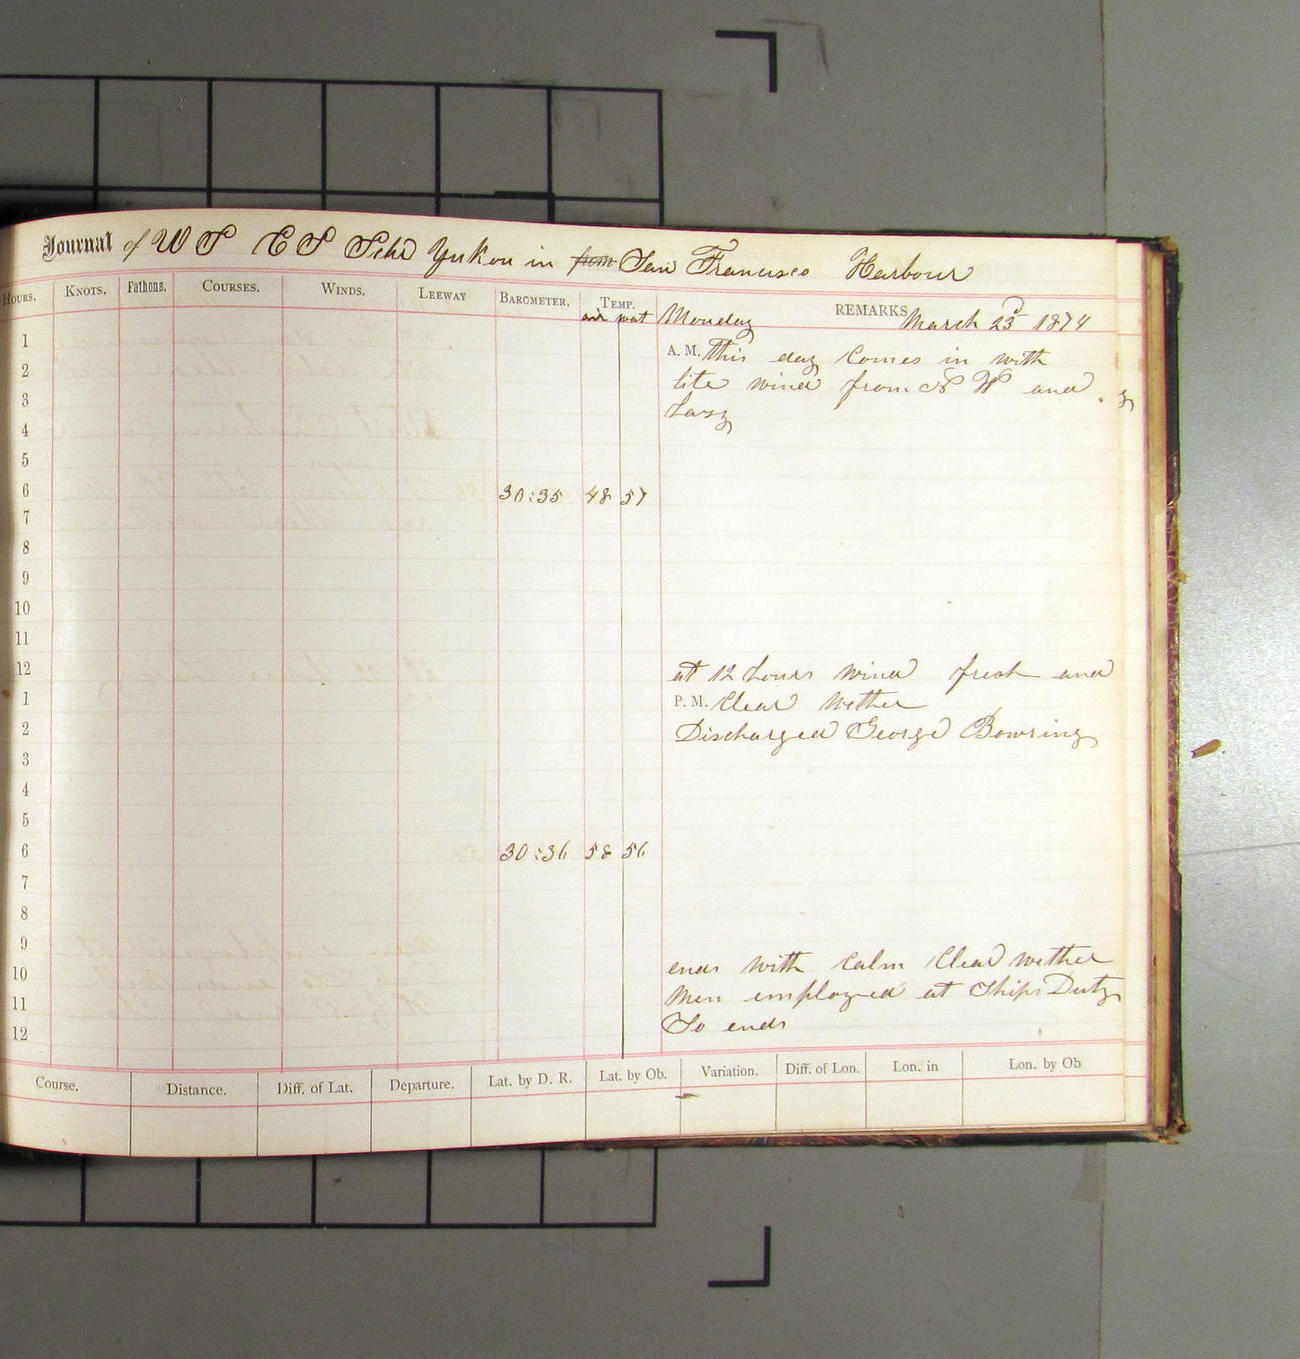 Journal of U S C S Schr Yukon in from San Francisco Harbour
HOURS. KNOTS. Fathoms. COURSES. WINDS. LEEWAY BAROMETER. TEMP. REMARKS
air wat Monday March 23d 1874
1
A. M. This day Comes in with
2
lite wind from N W and
3
hazy
4
5
6 30:35 48 57
7
8
9
10
11
12 at 12 hours wind fresh and
1 P. M. Clear wether
2 Discharged George Bowring
3
4
5
6 30:36 58 56
7
8
9
ends with Calm Clear wether
10
Men employed at Ships Duty
11
So ends
12
Course. Distance. Diff. of Lat. Departure. Lat. by D. R. Lat. by Ob. Variation. Diff. of Lon. Lon. in Lon. by Ob